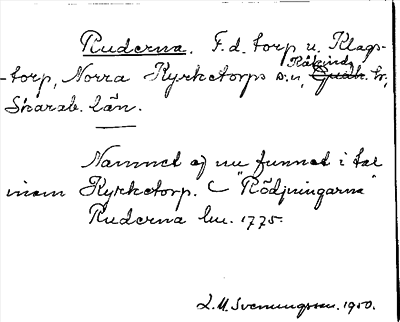 Ruderna. F.d. torp u. Klags-
torp, Norra Kyrketorps s:n, Kåkinds Gudh. hd,
Skarab. län.
Namnet ej nu funnet i tal
inom Kyrketorp. ( "Rödjningarna"
Ruderna hu. 1775.
L.M. Svenungsson. 1950.